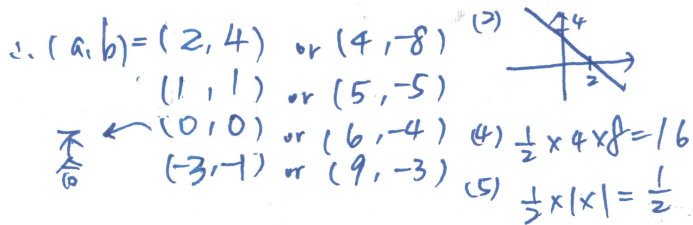 ∴ (a,b)=(2,4) or (4,-8)
(1,1) or (5,-5)
不合 ← (0,0) or (6,-4)
(-3,-1) or (9,-3)
(2)
4
2
(4) 1/2 × 4 × 8 = 16
(5) 1/2 × 1 × 1 = 1/2